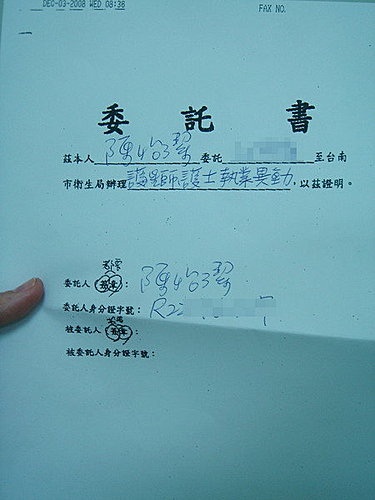 DEC-03-2008 WED 08:38 FAX NO.
委託書
茲本人 陳怡 委託 至台南
市衛生局辦理護理師護士執業異動,以茲證明。
委託人 : 陳怡
委託人身分證字號: R2
被委託人 :
被委託人身分證字號: